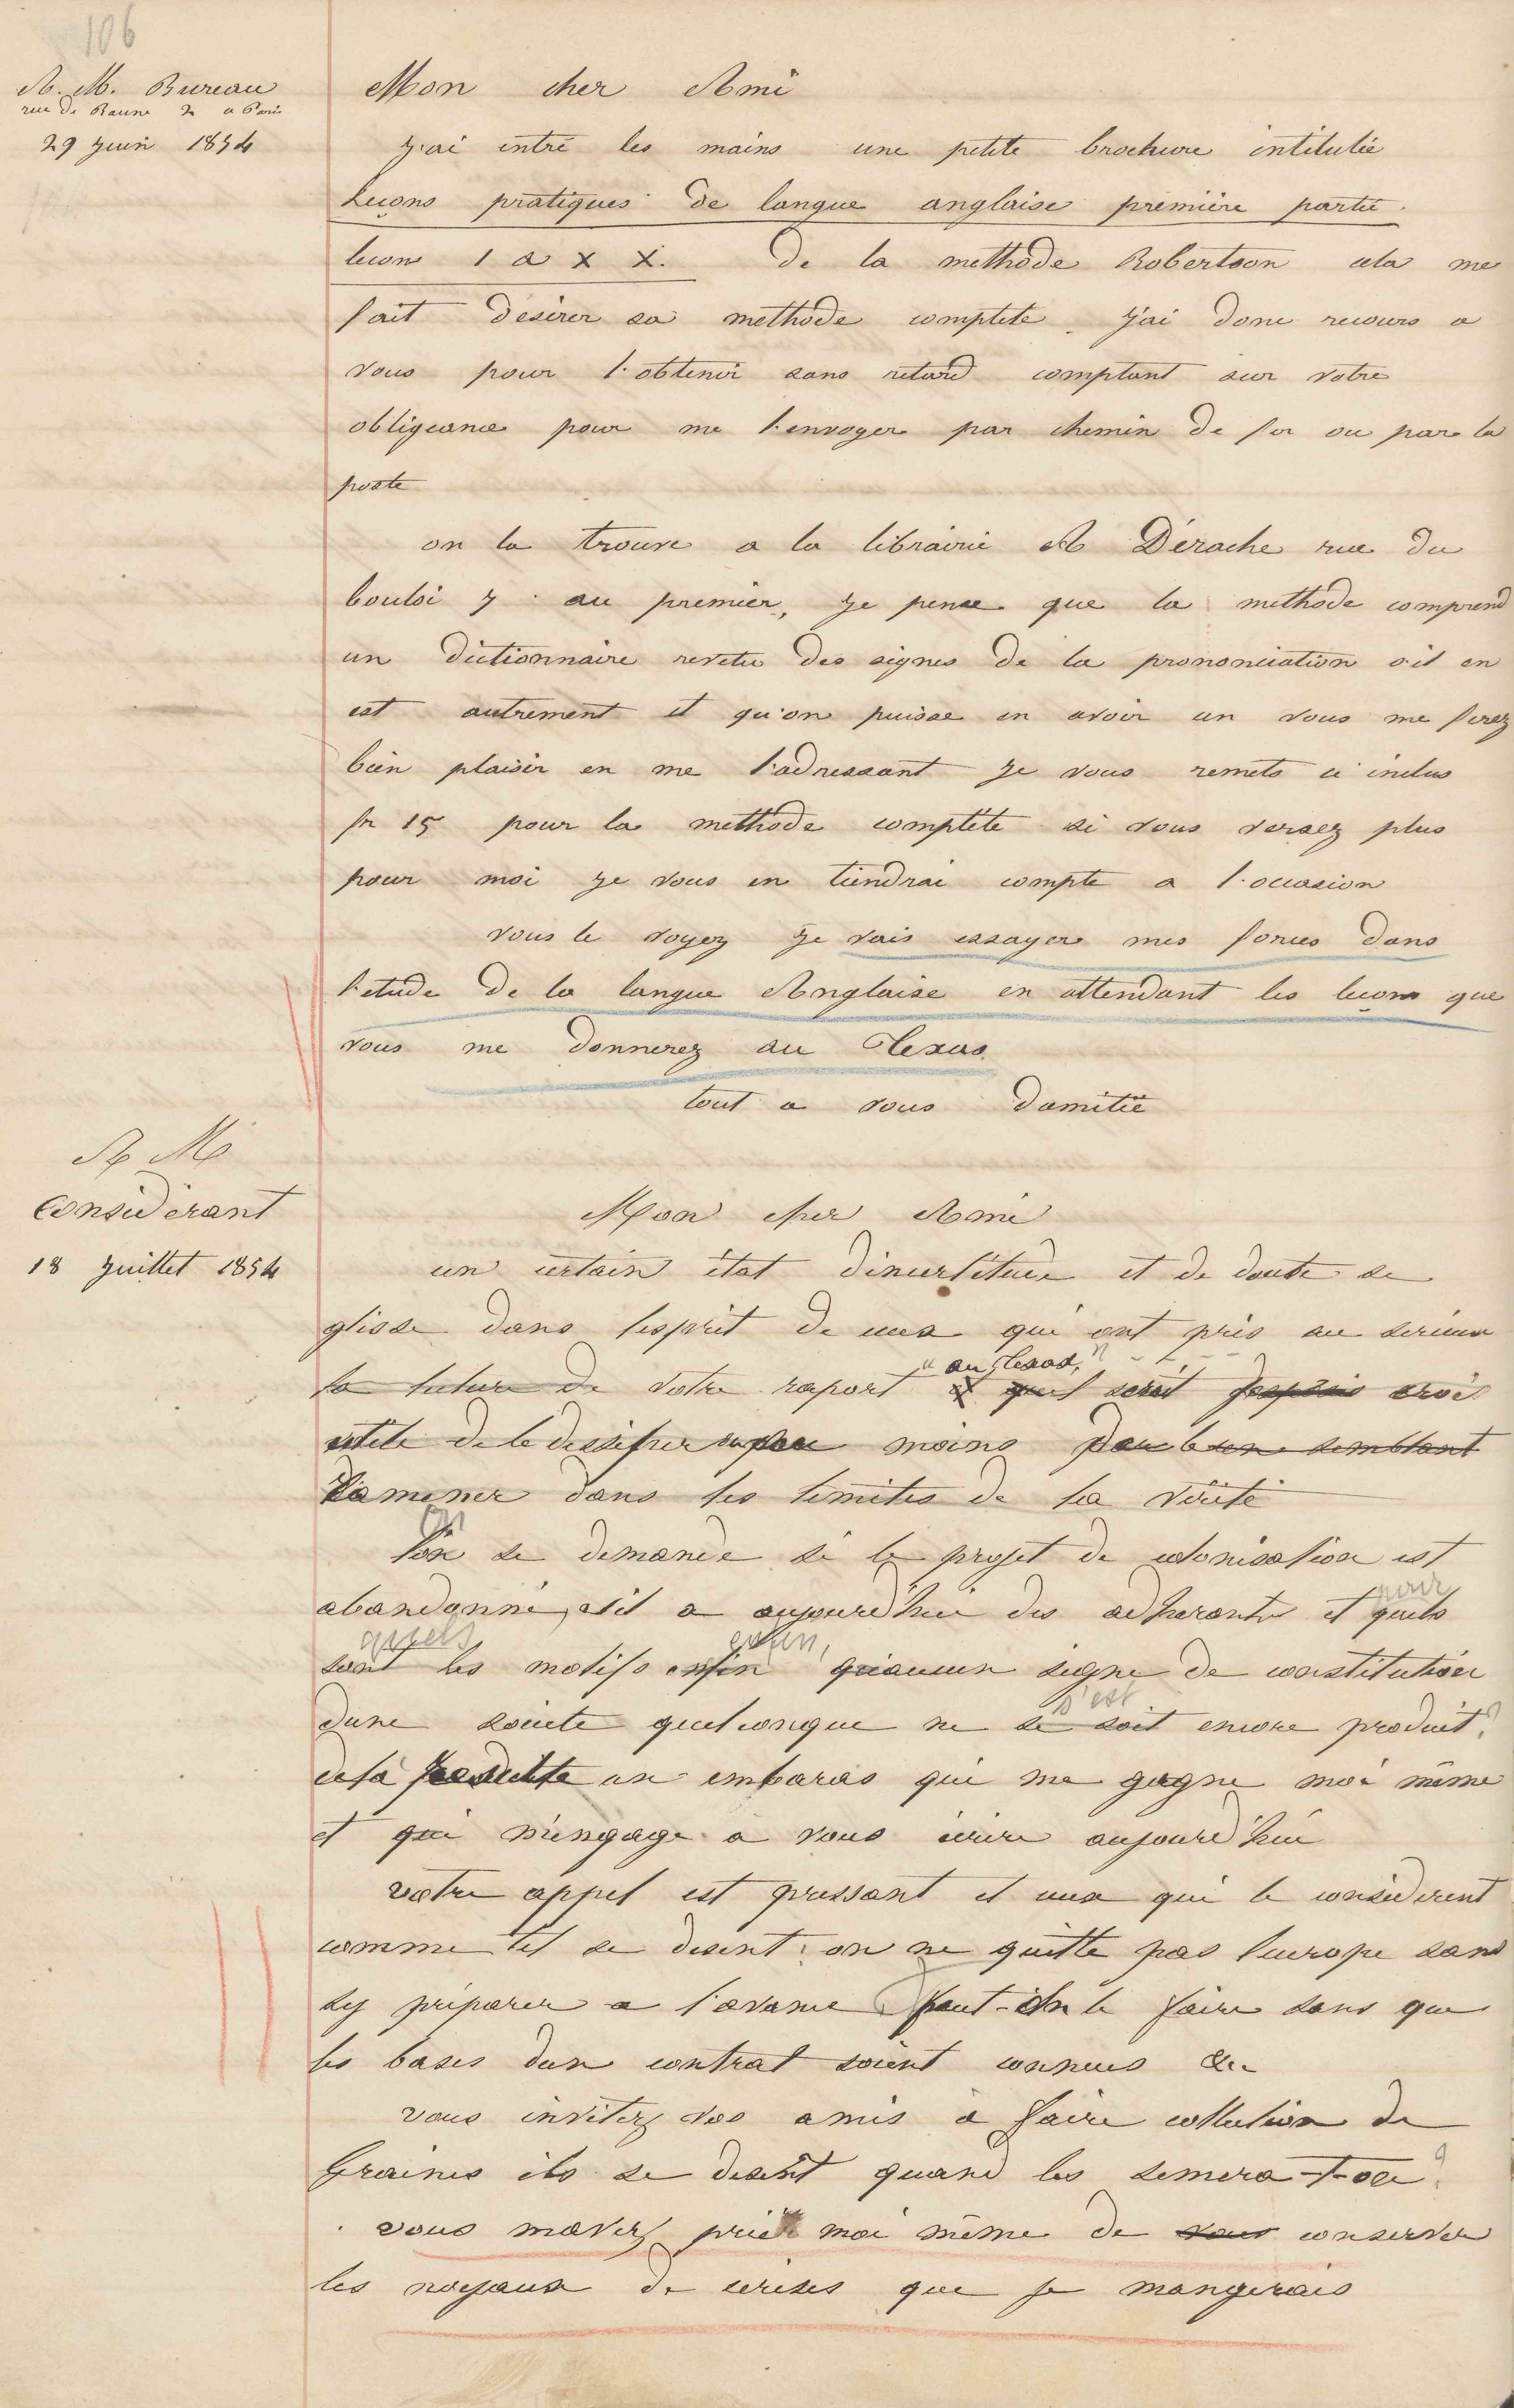 106
A. M. Bureau
rue de Baune 2 a Paris
29 juin 1854
Mon cher Ami
j'ai entré les mains une petite brochure intitulée
Leçons pratiques de langue anglaise première partie.
lecons 1 a X X. de la methode Robertson cela me
fait desirer sa methode complete. j'ai donc recours a
vous pour l'obtenir sans retard comptant sur votre
obligeance pour me l'envoyer par chemin de fer ou par la
poste
on la trouve a la librairie A Dérache rue du
bouloi 7 au premier, je pense que la methode comprend
un dictionnaire revetu des signes de la prononciation s'il en
est autrement et qu'on puisse en avoir un vous me ferez
bien plaisir en me l'adressant je vous remets ci inclus
fr 15 pour la methode complète si vous versez plus
pour moi je vous en tiendrai compte a l'occasion
vous le voyez je vais essayer mes forces dans
l'etude de la langue Anglaise en attendant les leçons que
vous me donnerez au Texas
tout a vous d'amitié
A Mr
Considérant
18 juillet 1854
Mon cher Ami
un certain état d'incertitude et de doute se
glisse dans l'esprit de ceux qui ont pris au serieux
la lecture de votre raport "au Texas," et crois
utile de le dissiper moins par bien semblant
l'amener dans les limites de la vérité
On se demande si le projet de colonisation est
abandonné, s'il a aujourd'hui des adherents et pour quels
quels sont les motifs enfin, enfin qu'aucun signe de constitution
d'une societé quelconque ne se soit s'est encore produit?
cela un embaras qui me gagne moi même
et qui m'engage à vous écrire aujourd'hui
votre appel est pressant et ceux qui le considerent
comme tel se disent: on ne quitte pas l'europe sans
s'y préparer a l'avance peut-on le faire sans que
les bases d'un contrat soient connues &c
vous invitez vos amis à faire collection de
Graines ils se disent quand les semera-t-on?
vous m'avez prié moi même de vous conserver
les noyaux de cerises que je mangerais